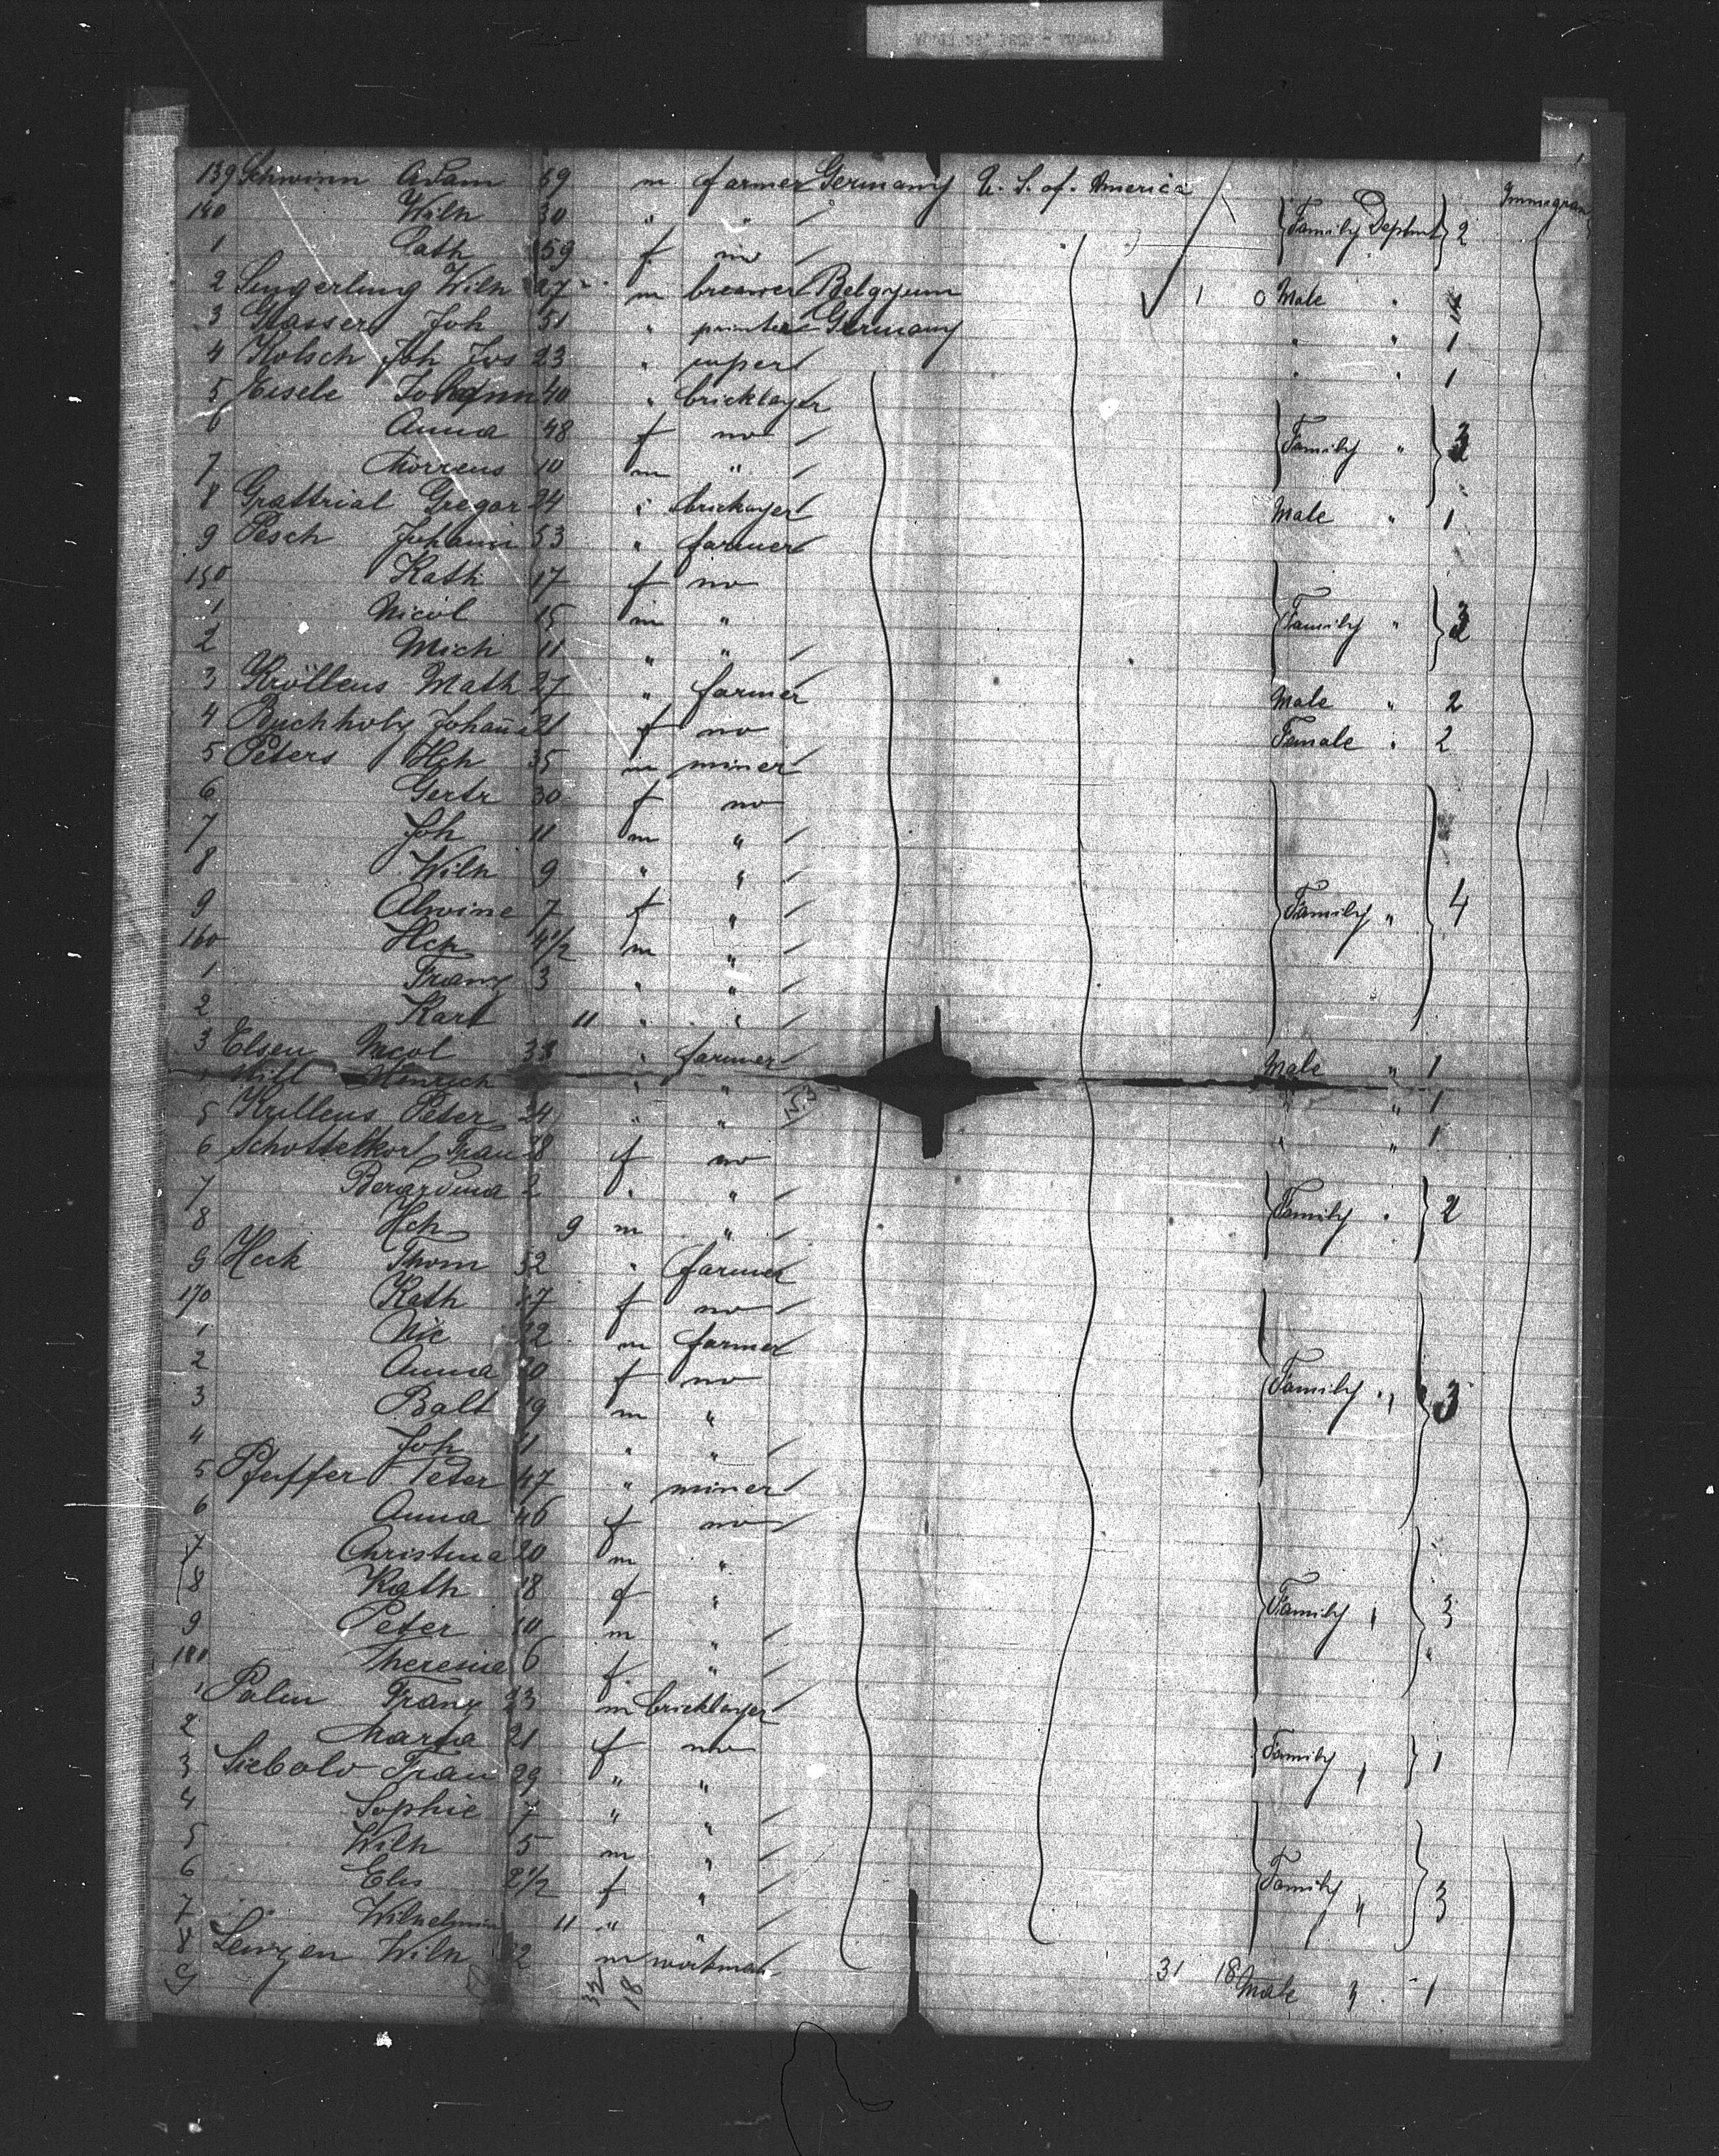 139 Schwinn Adam 59 m farmer Germany U. S. of. America Immigran
140 Wilh 30 " " Family Deptmt 2
1 Cath 59 f no
2 Lengerling Wilh 27 m brewer Belgyum 1 0 Male " 1
3 Grasser Joh 51 " printer Germany " " 1
4 Kolsch Joh Jos 23 " " " 1
5 Eisele Johann 40 " bricklayer
6 Anna 48 f no Family "
7 10 m "
8 Grattrial Gregor 24 " brickayer Male " 1
9 Pesch Johann 53 " farmer
150 Kath 17 f no
1 Nicol 15 m " Family "
2 Mich 11 " "
3 Kröllens Math 27 " farmer Male " 2
4 Buchholz Johanna 21 f no Female " 2
5 Peters Hch 35 m miner
6 Gertr 30 f no
7 Joh 11 m "
8 Wilh 9 " "
9 Alwine 7 f " Family " 4
160 Hch 4 1/2 m "
1 Franz 3 " "
2 Karl 11 " "
3 Elsen Nicol 33 " farmer Male " 1
Hinrich " " " " 1
5 Krillens Peter 24 " " " " 1
6 Schottelkorf Frau 28 f no
7 2 " " Family " 2
8 Hch 9 m "
9 Heck Thom 52 " farmer
170 Kath f no
1 Nic m farmer
2 Anna 20 f no Family " 3
3 Balt 19 m "
4 Joh 11 " "
5 Pfeiffer Peter 47 " miner
6 Anna 46 f no
7 Christina 20 m "
8 Kath 18 f " Family " 3
9 Peter 10 m "
180 Theresia 6 f "
1 Palm Franz 23 m bricklayer
2 Maria 21 f no Family " 1
3 Siebold Frau 29 " "
4 Sophie 7 " "
5 Wilh 5 m "
6 Elis 2 1/2 f " Family " 3
7 Wilhelmin 11 "
8 Lenzen Wilh m workman 31 18 Male " 1
9 18